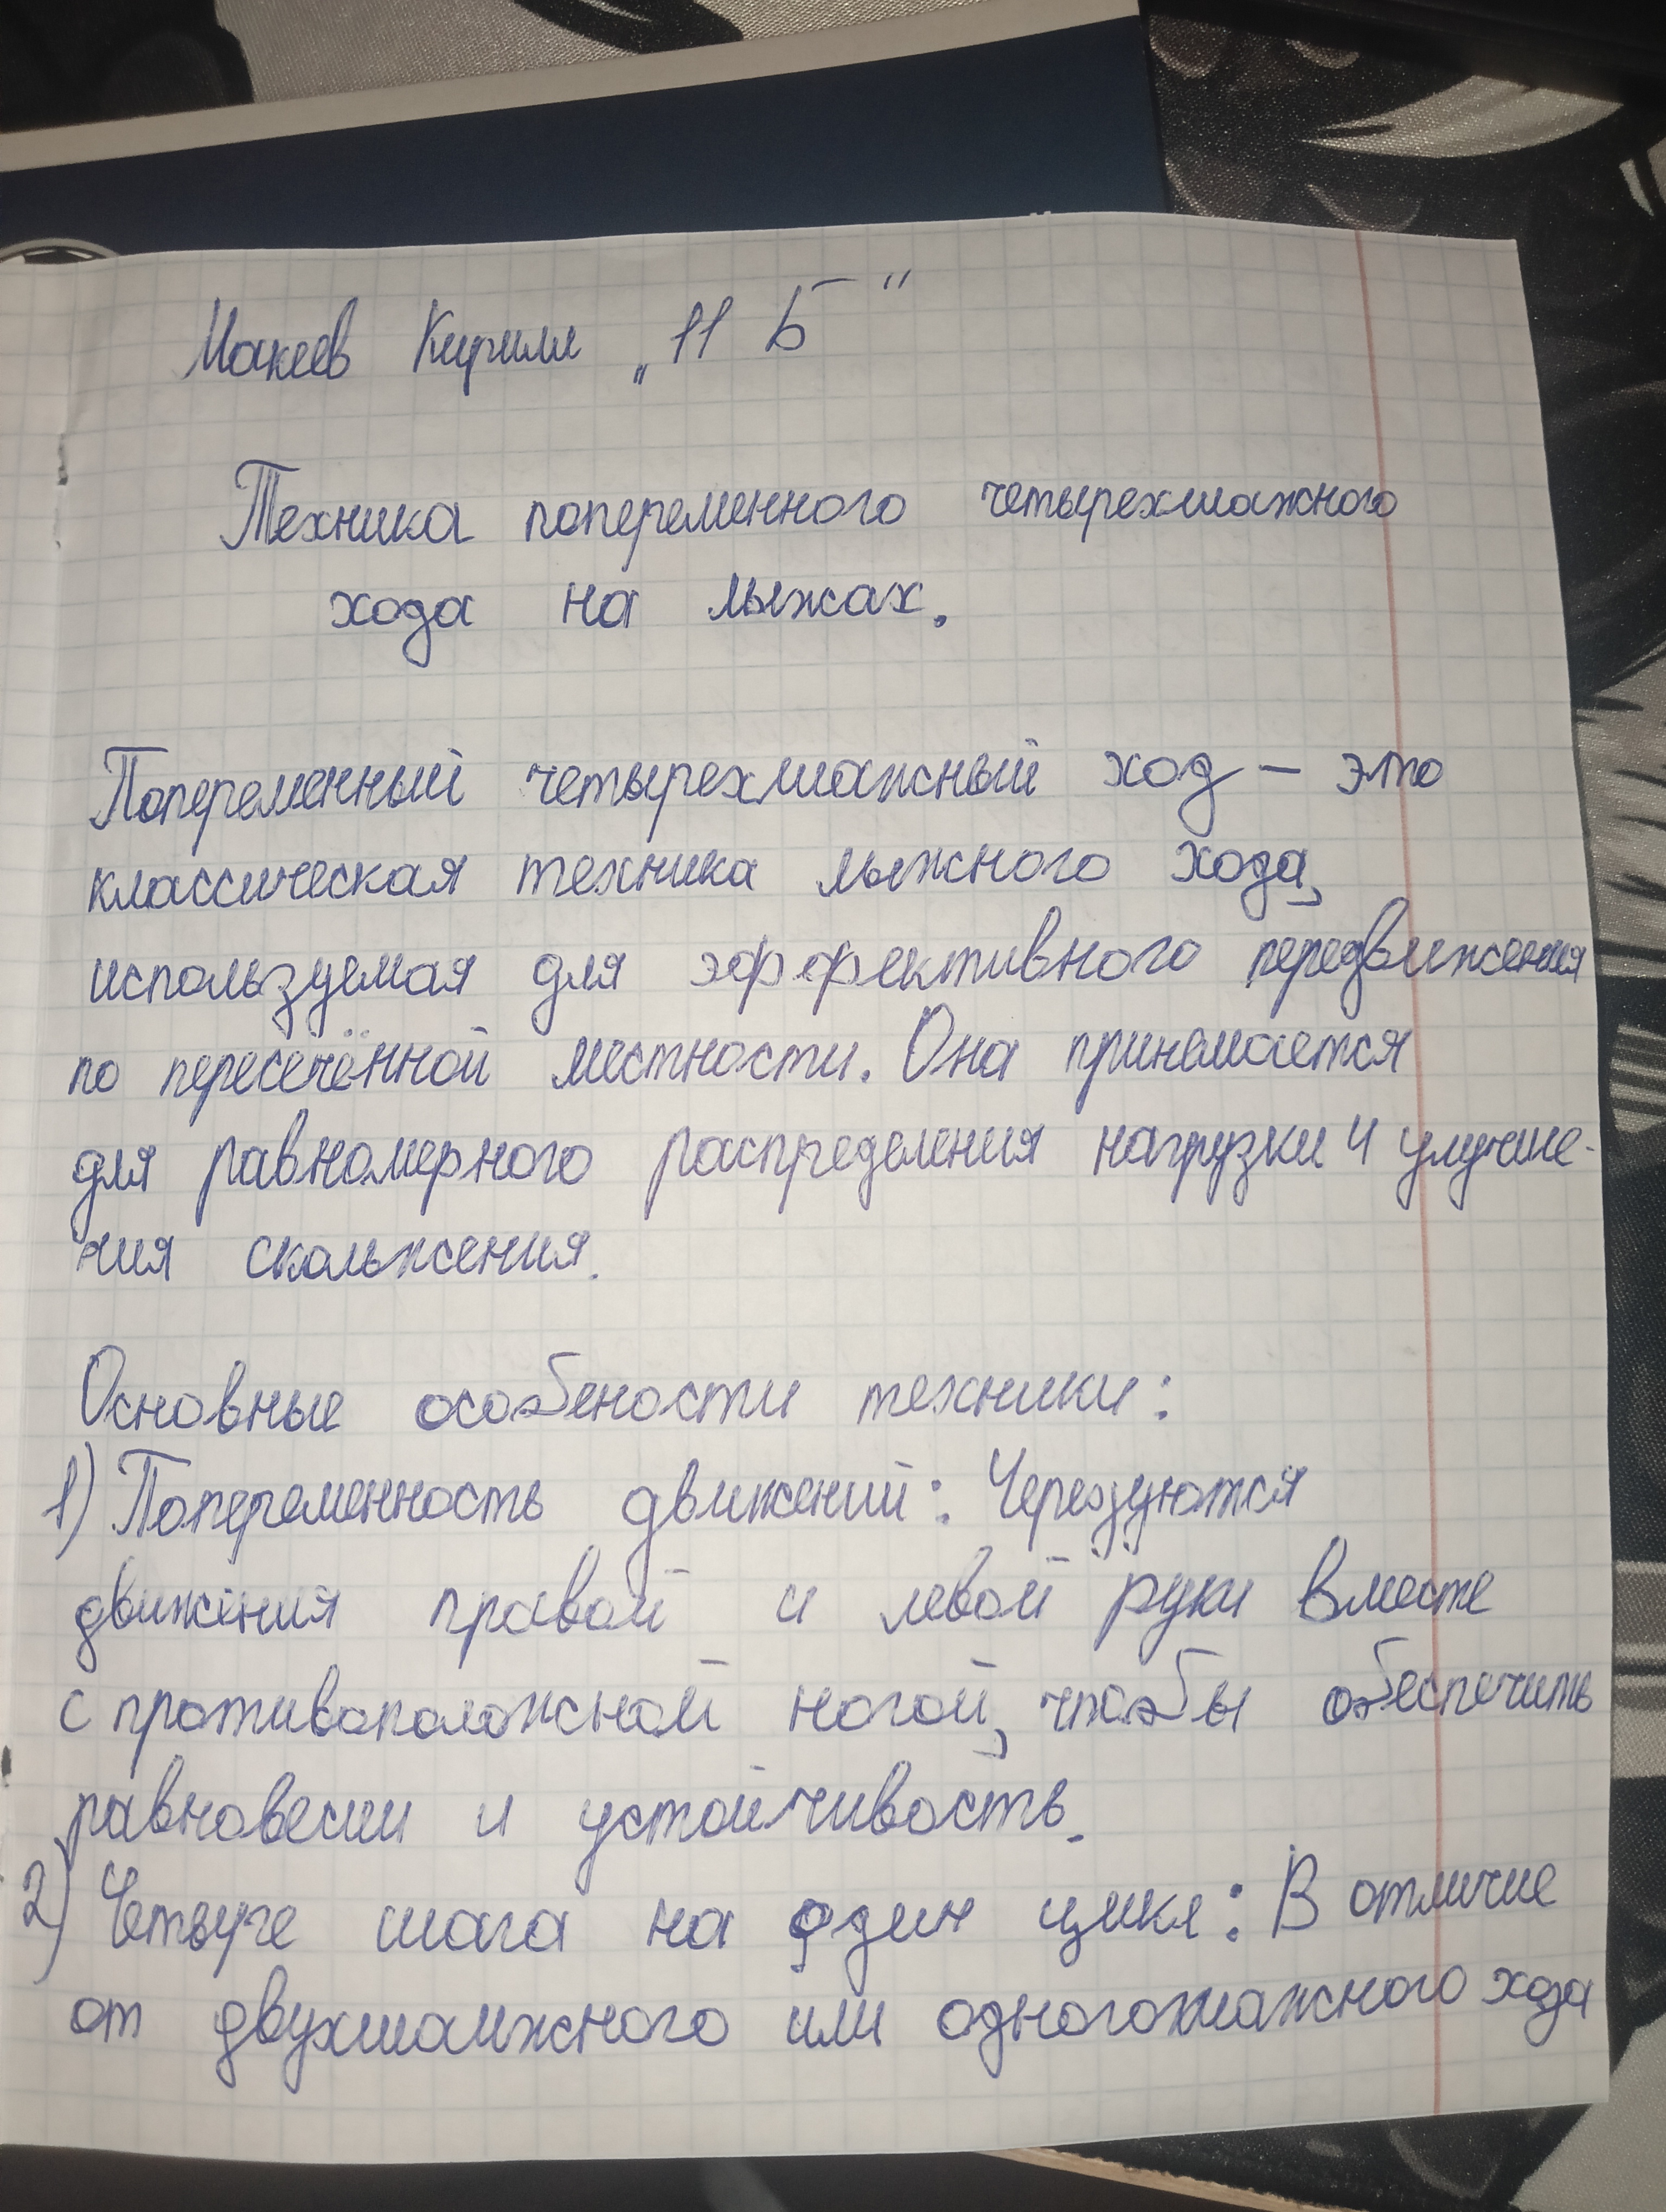 Макеев Кирилл „11 Б"
Техника попеременного четырехшажного
хода на лыжах.
Попеременный четырехшажный ход – это
классическая техника лыжного хода,
используемая для эффективного передвижения
по пересечённой местности. Она принемается
для равномерного распределения нагрузки и улучше-
ния скольжения.
Основные особености техники:
1) Попеременность движений: Черездуются
движения правой и левой руки вместе
с противоположной ногой, чтобы обеспечить
равновесии и устойчивость.
2) Четыре шага на один цикл: В отличие
от двухшажного или одногошажного хода